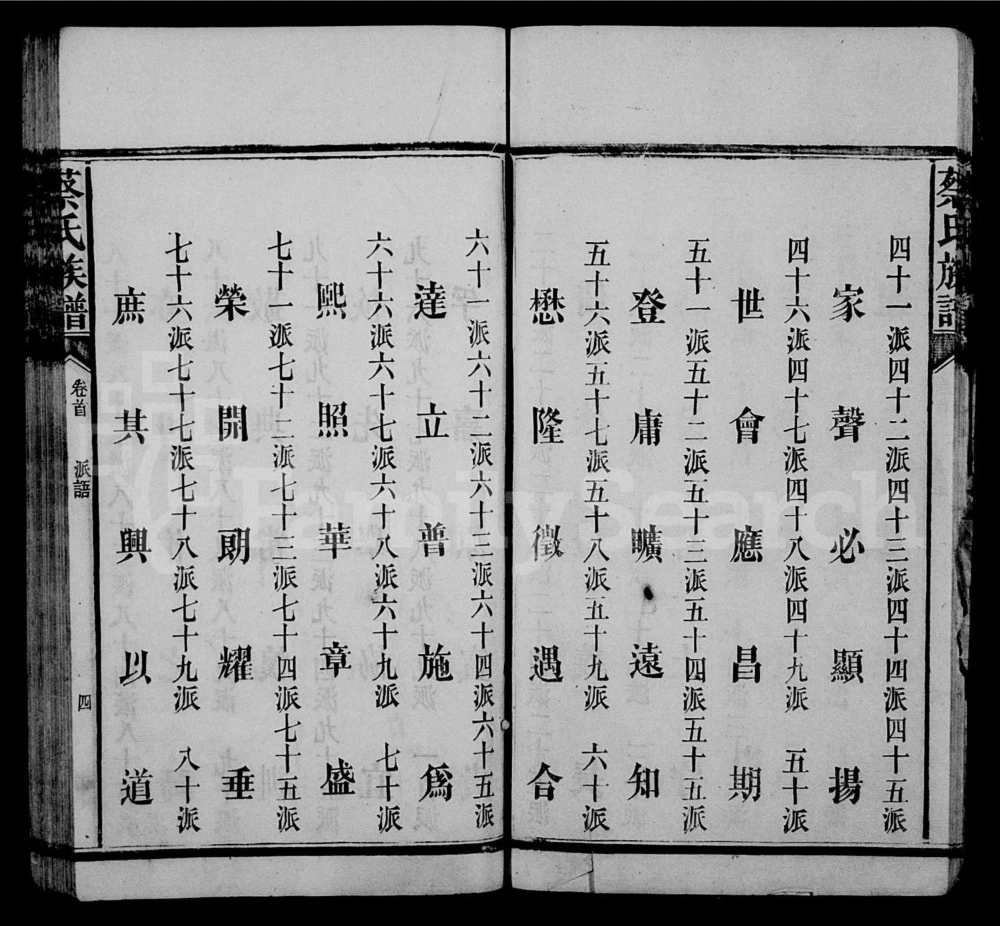 蔡氏族譜
四十一派四十二派四十三派四十四派四十五派
家聲必顯揚
四十六派四十七派四十八派四十九派 五十派
世會應昌期
五十一派五十二派五十三派五十四派五十五派
登庸曠遠知
五十六派五十七派五十八派五十九派 六十派
懋隆徵遇合
六十一派六十二派六十三派六十四派六十五派
達立普施為
六十六派六十七派六十八派六十九派 七十派
熙照華章盛
七十一派七十二派七十三派七十四派七十五派
榮開朗耀垂
七十六派七十七派七十八派七十九派 八十派
庶其興以道
蔡氏族譜 卷首 派語 四
FamilySearch